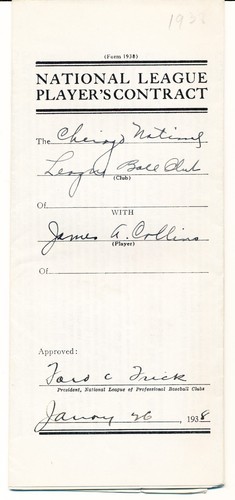 1938
(Form 1938)
NATIONAL LEAGUE
PLAYER'S CONTRACT
The Chicago National
League Ball Club
(Club)
Of
WITH
James A. Collins
(Player)
Of
Approved:
Ford C Frick
President, National League of Professional Baseball Clubs
January 26, 1938